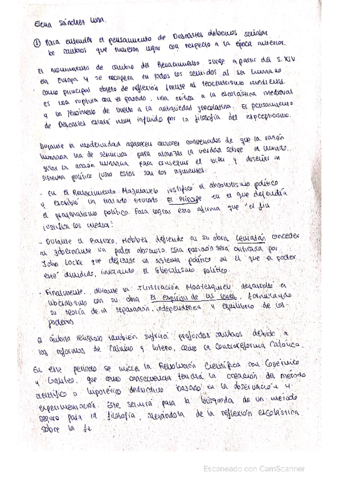 Elena Sánchez
① Para entender el pensamiento de Descartes debemos señalar
los cambios que tuvieron lugar con respecto a la época anterior.
El movimiento de cambio del Renacimiento surge a partir del S.XIV
en Europa y se recupera en todos los sentidos al ser humano
como principal objeto de reflexión frente al teocentrismo medieval
es una ruptura con el pasado, una crítica a la escolástica medieval
y un fenómeno de vuelta a la antigüedad grecolatina. El pensamiento
de Descartes estará muy influido por la filosofía del escepticismo.
Durante la modernidad aparecen autores convencidos de que la razón
humana
sistema político justo estos son los siguientes.
- En el Renacimiento Maquiavelo justificó el absolutismo político
y escribió un tratado titulado El Príncipe en el que defendía
el pragmatismo político. Para lograr esto afirma que "el fin
justifica los medios".
- Durante el Barroco Hobbes defiende en su obra Leviatán conceder
al gobernante un poder absoluto. Este pensamiento será criticado por
John Locke que defiende un sistema político en el que el poder
esté dividido, iniciando el liberalismo político.
- Finalmente, durante la Ilustración Montesquieu desarrolla el
liberalismo con su obra El espíritu de las leyes, formulando
su teoría de la separación, independencia y equilibrio de los
poderes.
El ámbito religioso también sufrirá profundos cambios debido a
las reformas de Calvino y Lutero, como la Contrarreforma Católica.
En este periodo se inicia la Revolución Científica con Copérnico
y Galileo, que como consecuencia tendrá la creación del método
científico o hipotético deductivo basado en la observación y
experimentación. Este servirá para la búsqueda de un método
seguro para la filosofía, alejándola de la reflexión escolástica
sobre la fe.
Escaneado con CamScanner